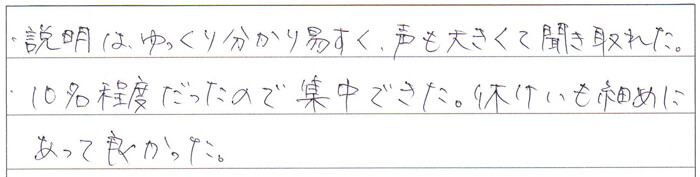 ・説明は、ゆっくり分かり易すく、声も大きくて聞き取れた。
・10名程度だったので集中できた。休けいも細めに
あって良かった。